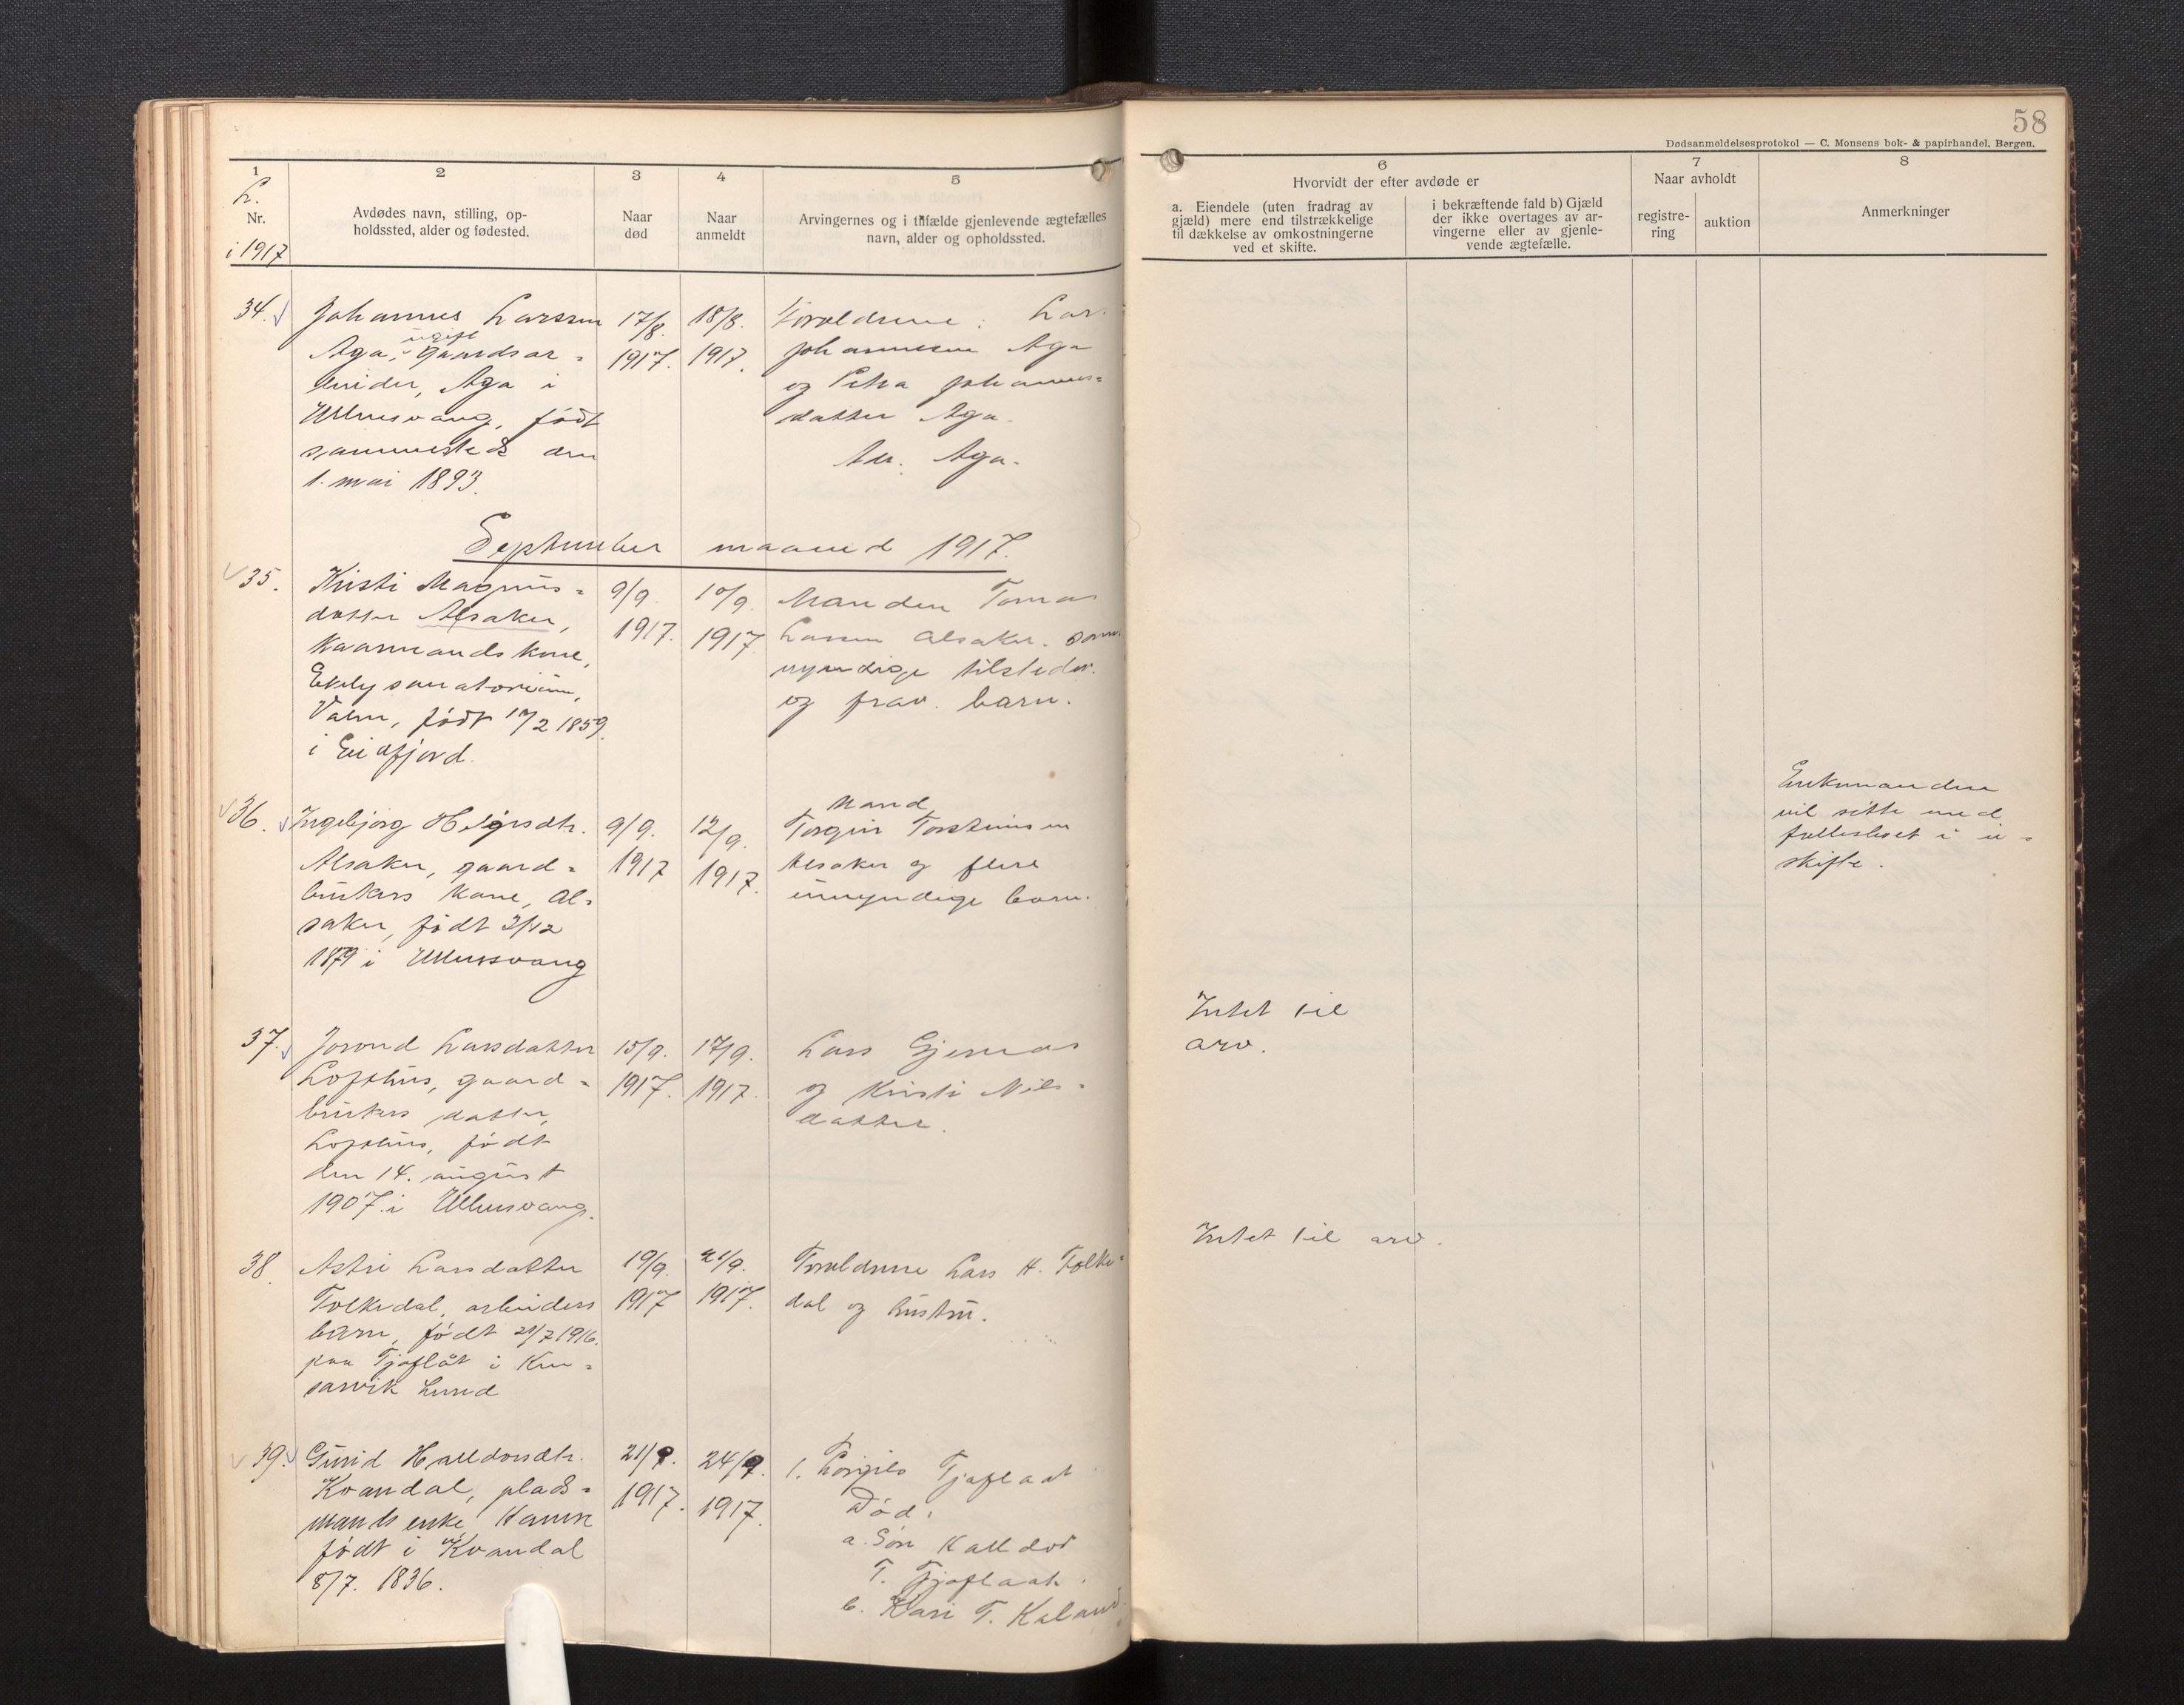 58
Dødsanmeldelsesprotokol — C. Monsens bok- & papirhandel, Bergen.
1
L.
Nr.
i 1917
2
Avdødes navn, stilling, op-
holdssted, alder og fødested.
3
Naar
død
4
Naar
anmeldt
5
Arvingernes og i tilfælde gjenlevende ægtefælles
navn, alder og opholdssted.
6
Hvorvidt der efter avdøde er
a. Eiendele (uten fradrag av
gjæld) mere end tilstrækkelige
til dækkelse av omkostningerne
ved et skifte.
i bekræftende fald b) Gjæld
der ikke overtages av ar-
vingerne eller av gjenle-
vende ægtefælle.
7
Naar avholdt
registre-
ring
auktion
8
Anmerkninger
34.
Johannes Larssen
ugift
Aga, gaardsar-
beider, Aga i
Ullensvang, født
sammesteds den
1. mai 1893.
17/8.
1917.
18/8.
1917.
Foreldrene: Lars
Johannesen Aga
og Petra Johannes-
datter Aga.
Adr. Aga.
September maaned 1917.
35.
Kristi Magnus-
datter Alsaker,
kaarmands kone,
Eikely sanatorium,
født 17/2 1859
i Eidfjord.
9/9.
1917.
10/9.
1917
Manden Tomas
Larsen Alsaker. Samt
myndige tilstedev.
og frav. barn.
36.
Ingebjørg Helgesdtr.
Alsaker, gaard-
brukers kone, Al-
saker, født 3/12
1879 i Ullensvang
9/9.
1917
12/9.
1917.
Mand
Torgeir Torsteinsen
Alsaker og flere
umyndige barn.
Enkemanden
vil sitte med
fællesboet i u-
skifte.
37.
Jorond Larsdatter
Lofthus, gaard-
brukers datter,
Lofthus, født
den 14. august
1907 i Ullensvang.
15/9.
1917.
17/9.
1917.
Lars Gjernes
og Kristi Nils-
datter.
Intet til
arv.
38.
Astri Larsdatter
Tolkedal, arbeiders
barn, født 21/7 1916.
paa Tjoflåt i Kin-
sarvik Lund
19/9.
1917
21/9.
1917.
Foreldrene Lars H. Folke-
dal og hustru.
Intet til arv.
39.
Gurid Halldorsdtr.
Kvandal, plads-
mands enke, Hamre
født i Kvandal
8/7. 1836.
21/9.
1917.
24/9.
1917.
1. Torgils Tjoflaat
Død:
a. Søn Halldor
T. Tjoflaat.
b. Kari T. Kaland